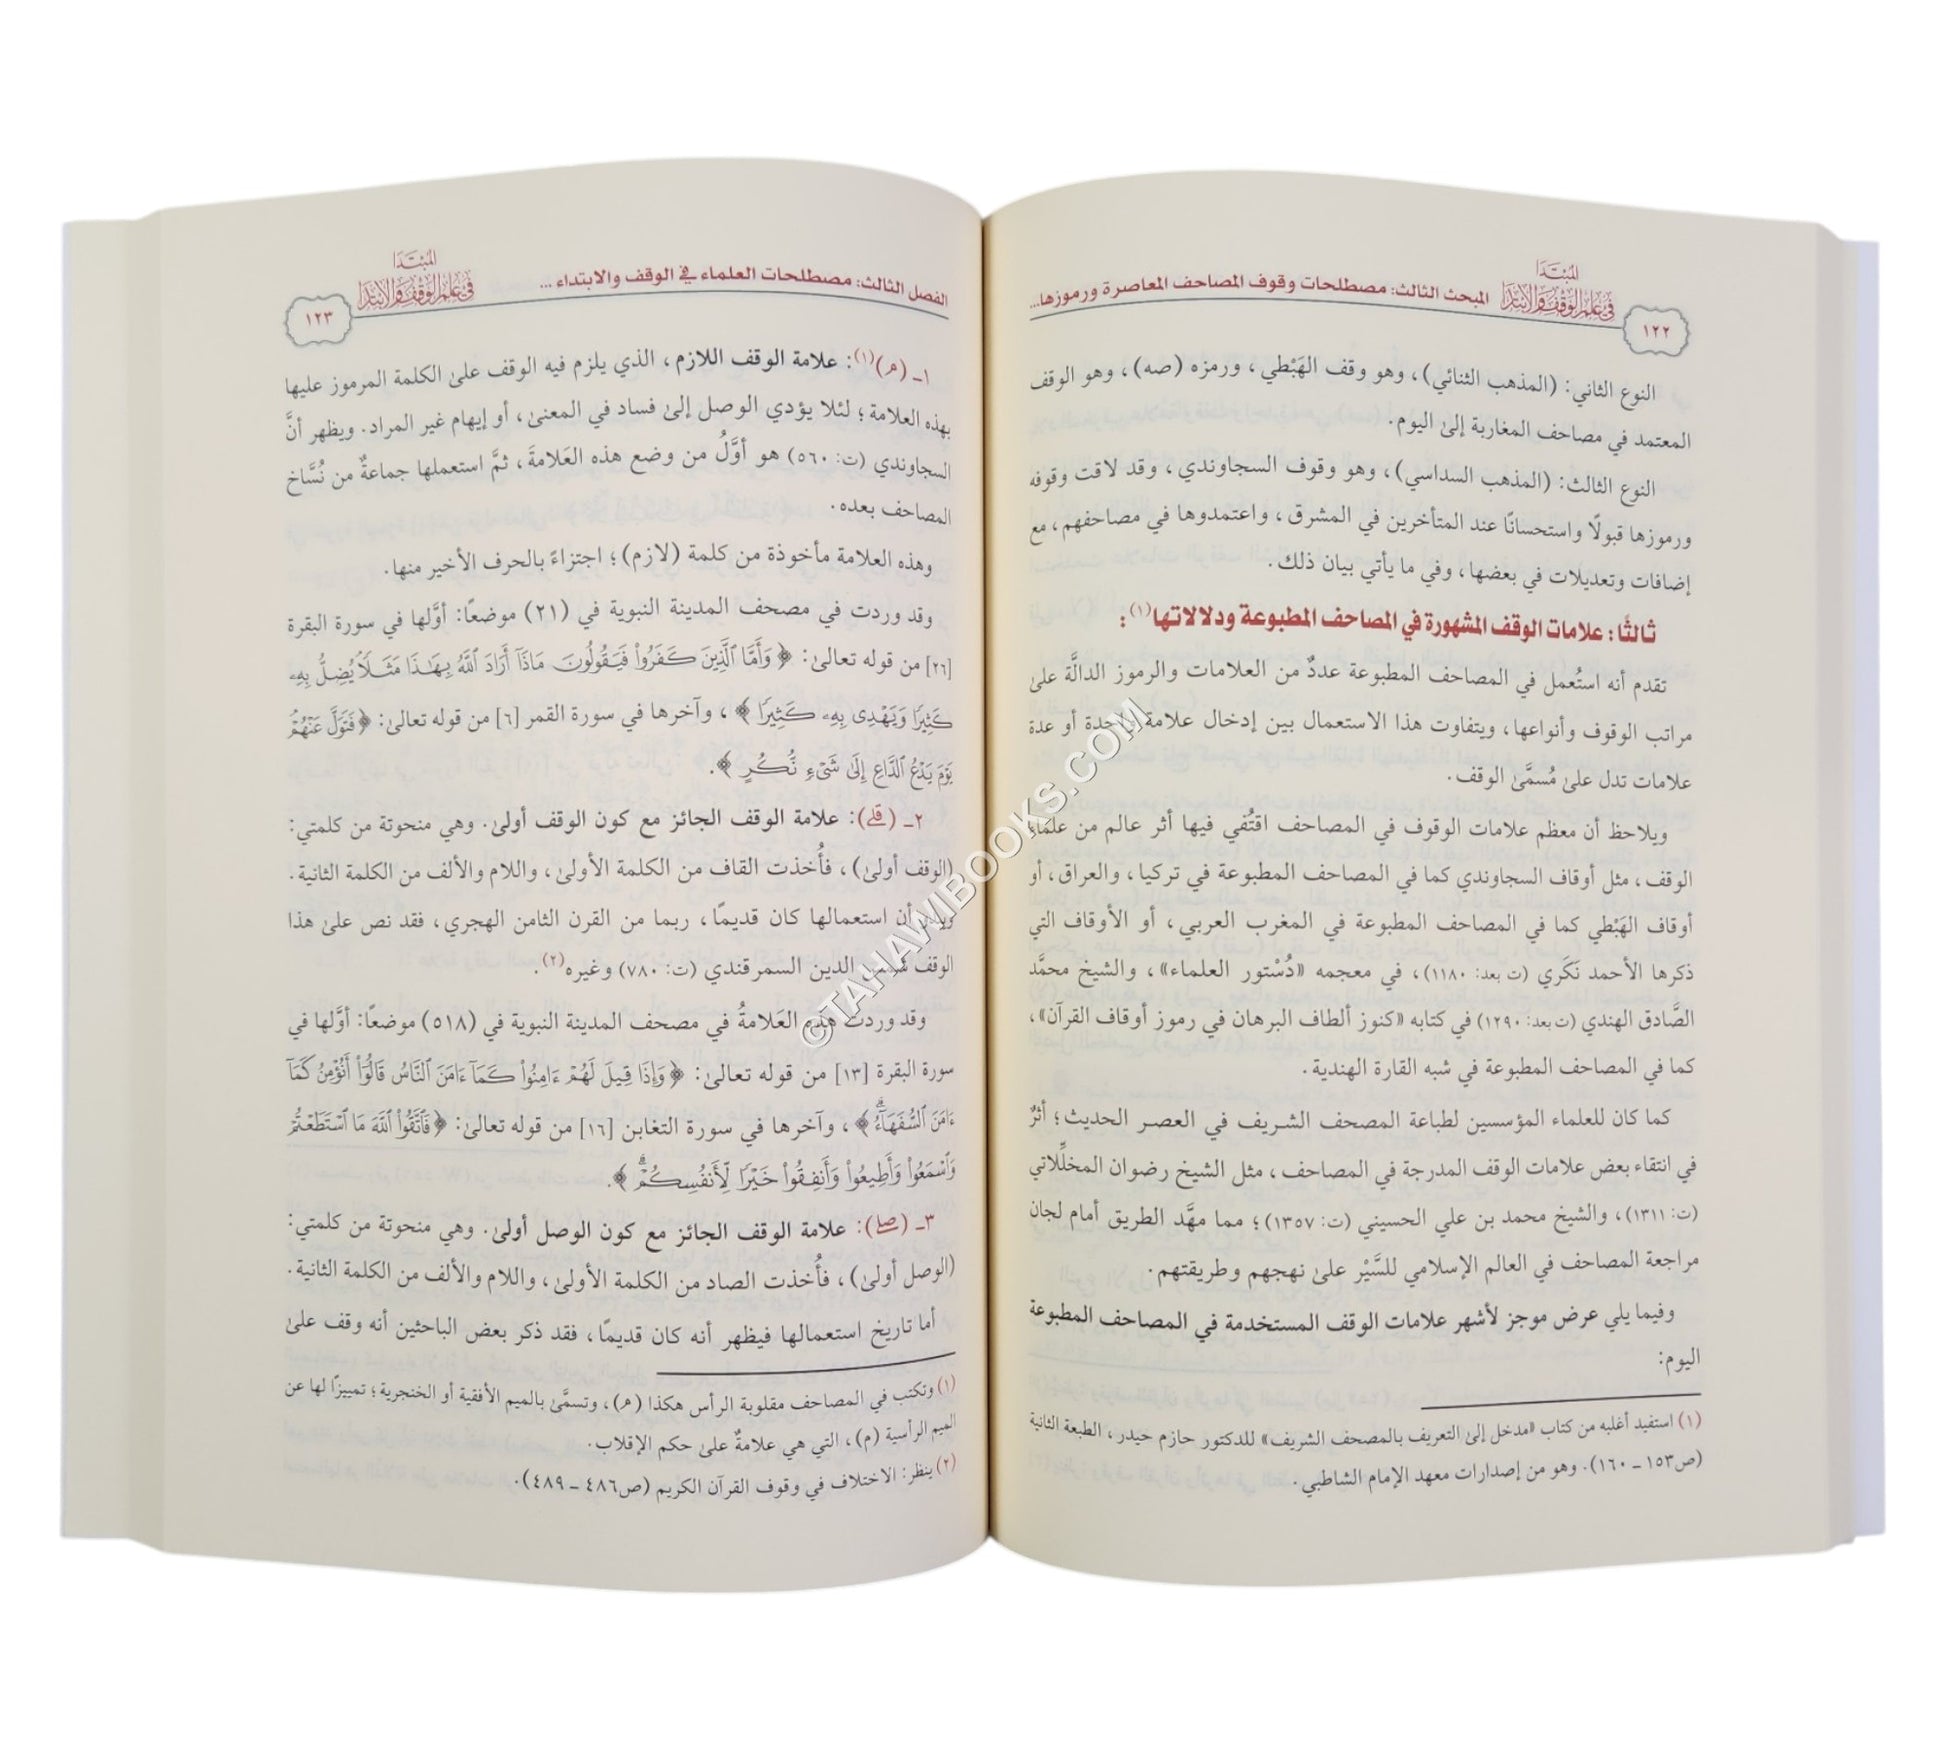 المبتدأ
في علم الوقف والابتداء
المبحث الثالث: مصطلحات وقوف المصاحف المعاصرة ورموزها...
١٢٢
النوع الثاني: (المذهب الثنائي)، وهو وقف الهَبْطي، ورمزه (صه)، وهو الوقف
المعتمد في مصاحف المغاربة إلى اليوم.
النوع الثالث: (المذهب السداسي)، وهو وقوف السجاوندي، وقد لاقت وقوفه
ورموزها قبولًا واستحسانًا عند المتأخرين في المشرق، واعتمدوها في مصاحفهم، مع
إضافات وتعديلات في بعضها، وفي ما يأتي بيان ذلك.
ثالثًا: علامات الوقف المشهورة في المصاحف المطبوعة ودلالاتها(١):
تقدم أنه استُعمل في المصاحف المطبوعة عددٌ من العلامات والرموز الدالَّة على
مراتب الوقوف وأنواعها، ويتفاوت هذا الاستعمال بين إدخال علامة واحدة أو عدة
علامات تدل على مُسمَّى الوقف.
ويلاحظ أن معظم علامات الوقوف في المصاحف اقتُفي فيها أثر عالم من علماء
الوقف، مثل أوقاف السجاوندي كما في المصاحف المطبوعة في تركيا، والعراق، أو
أوقاف الهَبْطي كما في المصاحف المطبوعة في المغرب العربي، أو الأوقاف التي
ذكرها الأحمد نَكَري (ت بعد: ١١٨٠)، في معجمه «دُسْتور العلماء»، والشيخ محمَّد
الصَّادق الهندي (ت بعد: ١٢٩٠) في كتابه «كنوز ألطاف البرهان في رموز أوقاف القرآن»،
كما في المصاحف المطبوعة في شبه القارة الهندية.
كما كان للعلماء المؤسسين لطباعة المصحف الشريف في العصر الحديث؛ أثرٌ
في انتقاء بعض علامات الوقف المدرجة في المصاحف، مثل الشيخ رضوان المخلِّلاتي
(ت: ١٣١١)، والشيخ محمد بن علي الحسيني (ت: ١٣٥٧)؛ مما مهَّد الطريق أمام لجان
مراجعة المصاحف في العالم الإسلامي للسَّيْر على نهجهم وطريقتهم.
وفيما يلي عرض موجز لأشهر علامات الوقف المستخدمة في المصاحف المطبوعة
اليوم:
(١) استفيد أغلبه من كتاب «مدخل إلى التعريف بالمصحف الشريف» للدكتور حازم حيدر، الطبعة الثانية
(ص١٥٣ ـ ١٦٠). وهو من إصدارات معهد الإمام الشاطبي.
الفصل الثالث: مصطلحات العلماء في الوقف والابتداء ...
المبتدأ
في علم الوقف والابتداء
١٢٣
١ـ (م)(١): علامة الوقف اللازم، الذي يلزم فيه الوقف على الكلمة المرموز عليها
بهذه العلامة؛ لئلا يؤدي الوصل إلى فساد في المعنى، أو إيهام غير المراد. ويظهر أنَّ
السجاوندي (ت: ٥٦٠) هو أوَّلُ من وضع هذه العَلامةَ، ثمَّ استعملها جماعةٌ من نُسَّاخ
المصاحف بعده.
وهذه العلامة مأخوذة من كلمة (لازم)؛ اجتزاءً بالحرف الأخير منها.
وقد وردت في مصحف المدينة النبوية في (٢١) موضعًا: أوَّلها في سورة البقرة
[٢٦] من قوله تعالى: ﴿ وَأَمَّا ٱلَّذِينَ كَفَرُوا۟ فَيَقُولُونَ مَاذَآ أَرَادَ ٱللَّهُ بِهَٰذَا مَثَلًا يُضِلُّ بِهِۦ
كَثِيرًا وَيَهْدِى بِهِۦ كَثِيرًا ﴾، وآخرها في سورة القمر [٦] من قوله تعالى: ﴿فَتَوَلَّ عَنْهُمْ ۘ
يَوْمَ يَدْعُ ٱلدَّاعِ إِلَىٰ شَىْءٍ نُّكُرٍ ﴾.
٢ـ (قلى): علامة الوقف الجائز مع كون الوقف أولى. وهي منحوتة من كلمتي:
(الوقف أولى)، فأُخذت القاف من الكلمة الأولى، واللام والألف من الكلمة الثانية.
ويبدو أن استعمالها كان قديمًا، ربما من القرن الثامن الهجري، فقد نص على هذا
الوقف شمس الدين السمرقندي (ت: ٧٨٠) وغيره(٢).
وقد وردت هذه العَلامةُ في مصحف المدينة النبوية في (٥١٨) موضعًا: أوَّلها في
سورة البقرة [١٣] من قوله تعالى: ﴿ وَإِذَا قِيلَ لَهُمْ ءَامِنُوا۟ كَمَآ ءَامَنَ ٱلنَّاسُ قَالُوٓا۟ أَنُؤْمِنُ كَمَآ
ءَامَنَ ٱلسُّفَهَآءُ ۗ ﴾، وآخرها في سورة التغابن [١٦] من قوله تعالى: ﴿فَٱتَّقُوا۟ ٱللَّهَ مَا ٱسْتَطَعْتُمْ
وَٱسْمَعُوا۟ وَأَطِيعُوا۟ وَأَنفِقُوا۟ خَيْرًا لِّأَنفُسِكُمْ ۗ ﴾.
٣ـ (صلى): علامة الوقف الجائز مع كون الوصل أولى. وهي منحوتة من كلمتي:
(الوصل أولى)، فأُخذت الصاد من الكلمة الأولى، واللام والألف من الكلمة الثانية.
أما تاريخ استعمالها فيظهر أنه كان قديمًا، فقد ذكر بعض الباحثين أنه وقف على
(١) وتكتب في المصاحف مقلوبة الرأس هكذا (م)، وتسمَّى بالميم الأفقية أو الخنجرية؛ تمييزًا لها عن
الميم الرأسية (م)، التي هي علامةٌ على حكم الإقلاب.
(٢) ينظر: الاختلاف في وقوف القرآن الكريم (ص٤٨٦ ـ ٤٨٩).
©TAHAWIBOOKS.COM